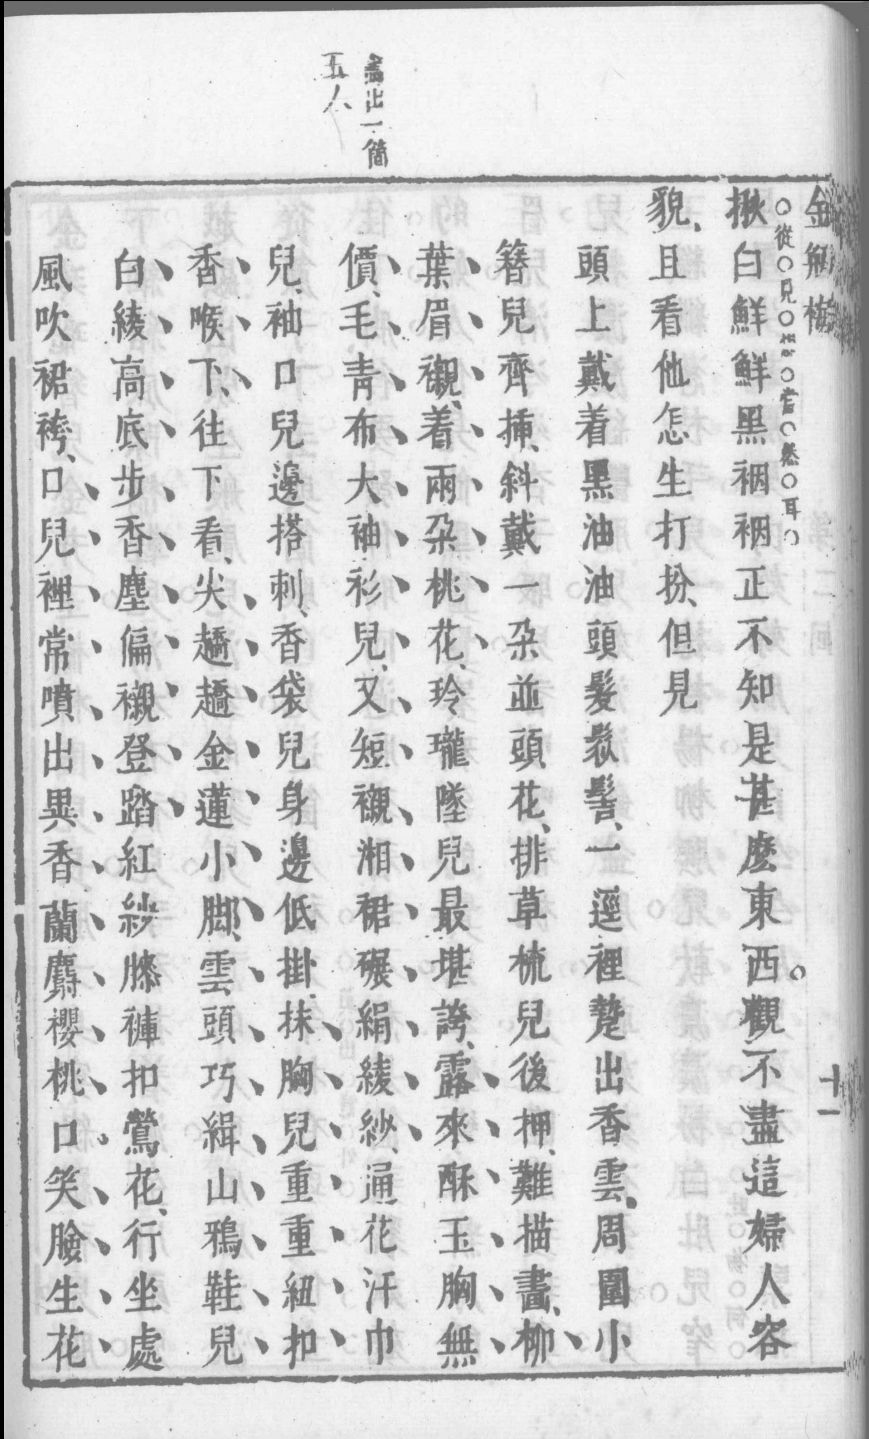 畵出一箇
五人
金瓶梅
從見
當然耳
第二囘
十一
揪白鮮鮮黑裀裀正不知是甚麽東西觀不盡這婦人容
貌、且看他怎生打扮、但見
頭上戴着黑油油頭髮䯼髻、一逕裡踅出香雲、周圍小
簪兒齊揷、斜戴一朶並頭花、排草梳兒後押、難描畵、柳
葉眉襯、着兩朶桃花、玲瓏墜兒最堪誇、露來酥玉胸無
價、毛青布大袖衫兒、又短襯湘裙碾絹綾紗、通花汗巾
兒、袖口兒邊搭剌、香袋兒身邊低掛、抹胸兒重重紐扣
香喉下、往下看、尖趫趫金蓮小脚、雲頭巧緝山鴉鞋兒
白綾高底步香塵偏襯登踏紅紗膝褲扣鶯花、行坐處
風吹裙袴、口兒裡常噴出異香蘭麝櫻桃口笑臉生花